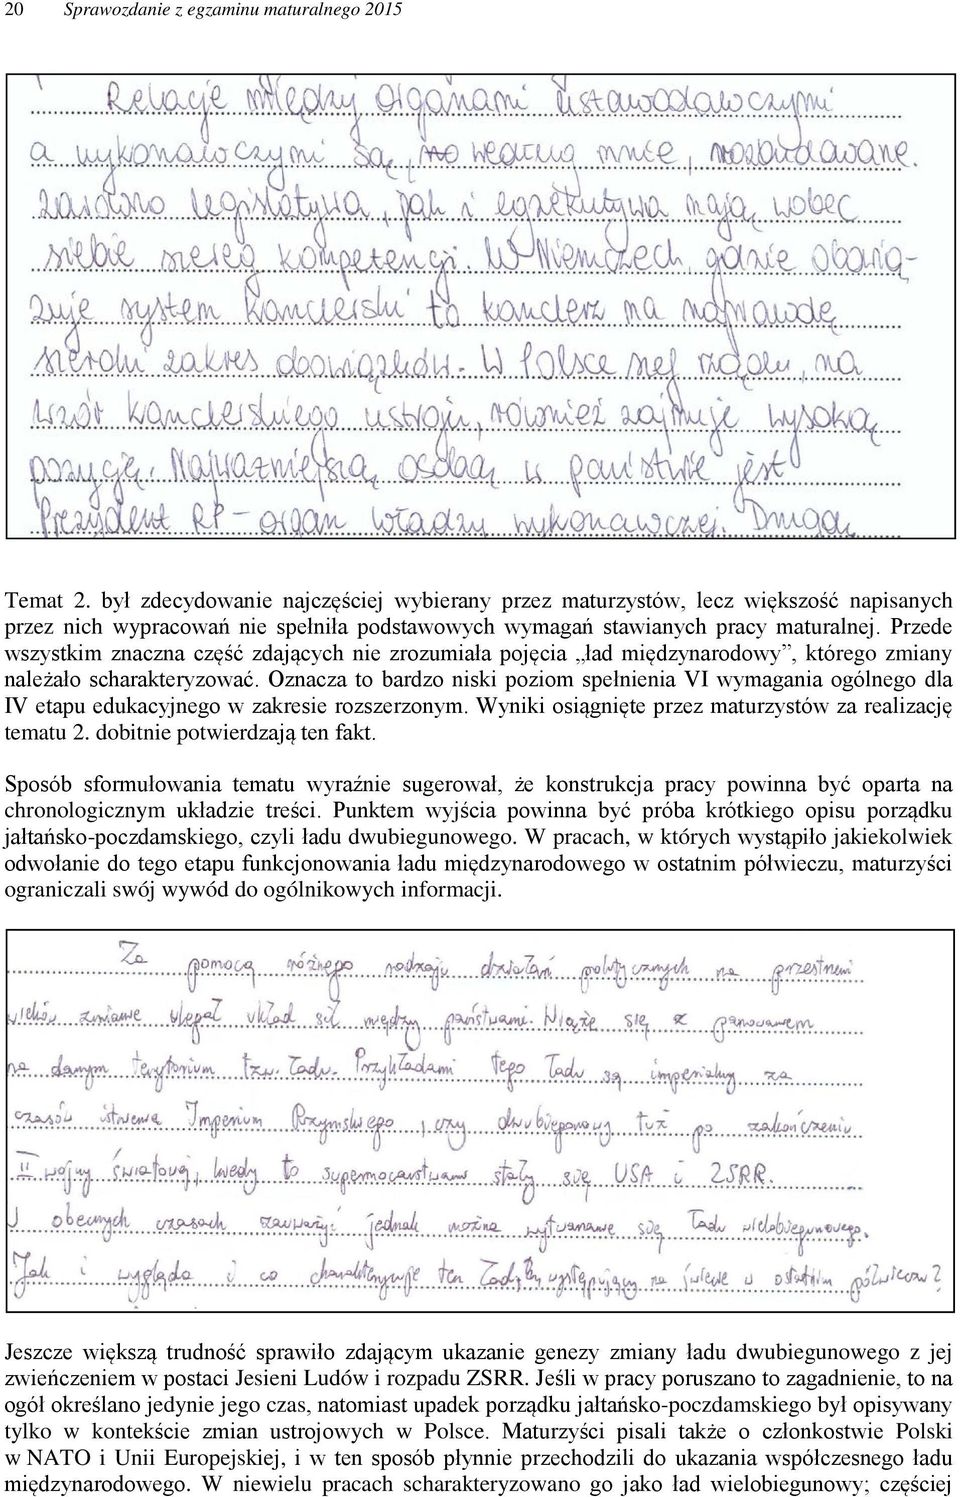 20 Sprawozdanie z egzaminu maturalnego 2015
Relacje między organami ustawodawczymi
a wykonawczymi są, według mnie, rozbudowane.
Zarówno legislatywa, jak i egzekutywa mają wobec
siebie szereg kompetencji. W Niemczech, gdzie obowią-
zuje system kanclerski to kanclerz ma naprawdę
szeroki zakres obowiązków. W Polsce szef rządu, na
wzór kanclerskiego ustroju, również zajmuje wysoką
pozycję. Najważniejszą osobą w państwie jest
Prezydent RP – organ władzy wykonawczej. Drugą
Temat 2. był zdecydowanie najczęściej wybierany przez maturzystów, lecz większość napisanych
przez nich wypracowań nie spełniła podstawowych wymagań stawianych pracy maturalnej. Przede
wszystkim znaczna część zdających nie zrozumiała pojęcia „ład międzynarodowy”, którego zmiany
należało scharakteryzować. Oznacza to bardzo niski poziom spełnienia VI wymagania ogólnego dla
IV etapu edukacyjnego w zakresie rozszerzonym. Wyniki osiągnięte przez maturzystów za realizację
tematu 2. dobitnie potwierdzają ten fakt.
Sposób sformułowania tematu wyraźnie sugerował, że konstrukcja pracy powinna być oparta na
chronologicznym układzie treści. Punktem wyjścia powinna być próba krótkiego opisu porządku
jałtańsko-poczdamskiego, czyli ładu dwubiegunowego. W pracach, w których wystąpiło jakiekolwiek
odwołanie do tego etapu funkcjonowania ładu międzynarodowego w ostatnim półwieczu, maturzyści
ograniczali swój wywód do ogólnikowych informacji.
Za pomocą różnego rodzaju działań politycznych na przestrzeni
wieków zmianie ulegał układ sił między państwami. Wiąże się z panowaniem
na danym terytorium tzw. ładu. Przykładami tego ładu są imperialny za
czasów istnienia Imperium Rzymskiego, czy dwubiegunowy tuż po zakończeniu
II wojny światowej, kiedy to supermocarstwami stały się USA i ZSRR.
W obecnych czasach zauważyć jednak można wytwarzanie się ładu wielobiegunowego.
Jak i wygląda i co charakteryzuje ten ład, występujący na świecie w ostatnim półwieczu?
Jeszcze większą trudność sprawiło zdającym ukazanie genezy zmiany ładu dwubiegunowego z jej
zwieńczeniem w postaci Jesieni Ludów i rozpadu ZSRR. Jeśli w pracy poruszano to zagadnienie, to na
ogół określano jedynie jego czas, natomiast upadek porządku jałtańsko-poczdamskiego był opisywany
tylko w kontekście zmian ustrojowych w Polsce. Maturzyści pisali także o członkostwie Polski
w NATO i Unii Europejskiej, i w ten sposób płynnie przechodzili do ukazania współczesnego ładu
międzynarodowego. W niewielu pracach scharakteryzowano go jako ład wielobiegunowy; częściej